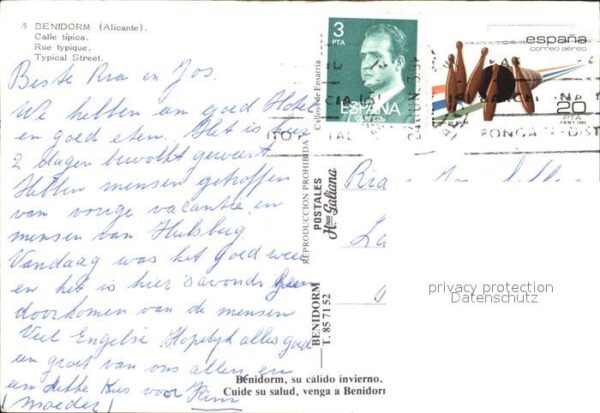 5 BENIDORM (Alicante).
Calle típica.
Rue typique.
Typical Street.
Beste Ria en Jos.
We hebben een goed Hotel
en goed eten. Het is hier
2 dagen bewolkt geweest
Hebben mensen getroffen
van vorige vacantie en
mensen van Hulsberg
Vandaag was het goed weer
en het is hier savonds geen
doorkomen van de mensen
Veel Engelse Hopelijk alles goed
een groet van ons allen en
een dikke Kus voor Kim
(Moeder)
REPRODUCCION PROHIBIDA
POSTALES
Hnos Galiana
BENIDORM
T. 85 71 52
Benidorm, su cálido invierno.
Cuide su salud, venga a Benidorm
3
PTA
ESPAÑA
CORREOS
españa
correo aéreo
20
PTA
PONGA
DIST
Ria
La
privacy protection
Datenschutz